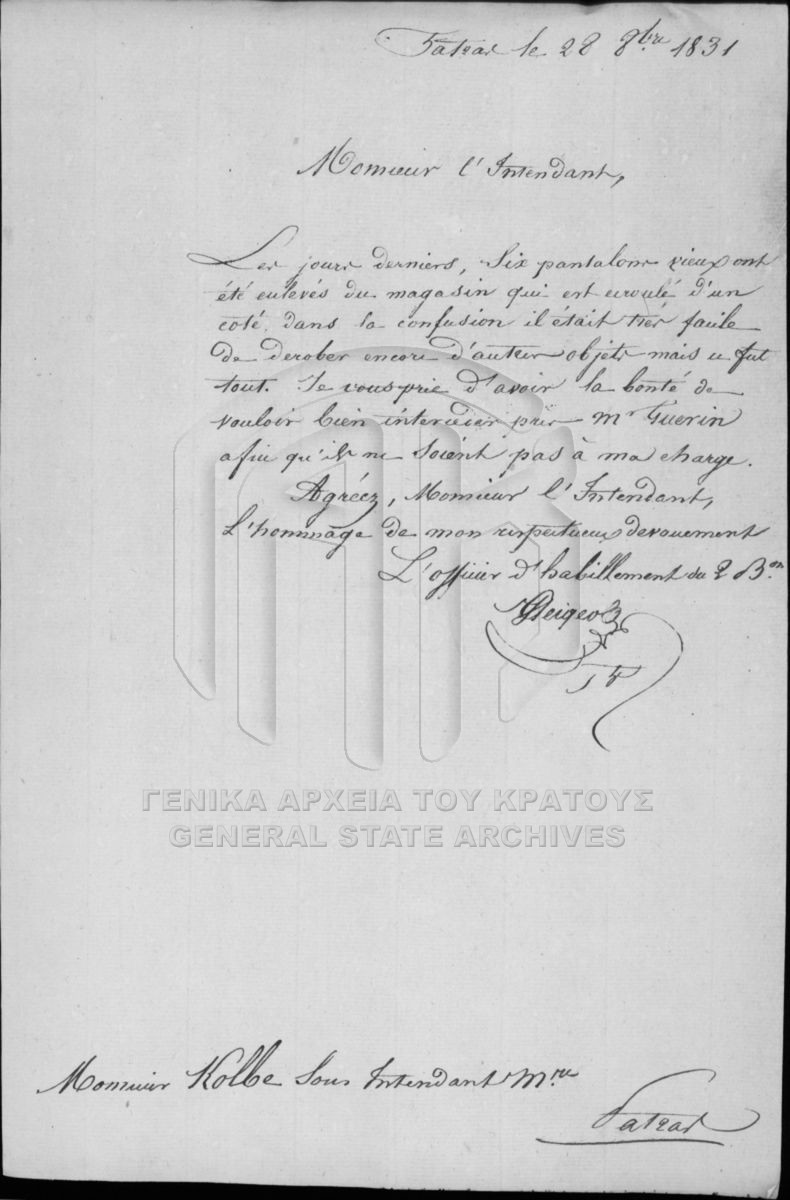 Patras le 28 8bre 1831
Monsieur l'Intendant,
Les jours derniers, six pantalons vieux ont
été enlevés du magasin qui est ecroulé d'un
coté. dans la confusion il était très facile
de derober encore d'autres objets mais ce fut
tout. Je vous prie d'avoir la bonté de
vouloir bien interceder près Mr Guerin
afin qu'ils ne soient pas à ma charge.
Agréez, Monsieur l'Intendant,
L'hommage de mon respectueux devouement
L'officier d'habillement du 2 Bon
ΓΕΝΙΚΑ ΑΡΧΕΙΑ ΤΟΥ ΚΡΑΤΟΥΣ
GENERAL STATE ARCHIVES
Monsieur Kolbe Sous Intendant Mre
Patras